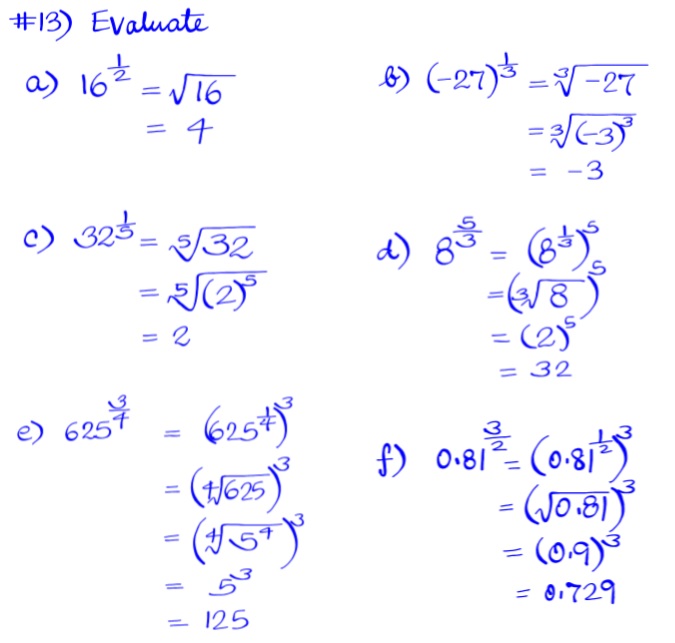 #13) Evaluate
a) 16^(1/2) = √16
= 4
b) (-27)^(1/3) = ∛-27
= ∛(-3)³
= -3
c) 32^(1/5) = ⁵√32
= ⁵√(2)⁵
= 2
d) 8^(5/3) = (8^(1/3))⁵
= (∛8)⁵
= (2)⁵
= 32
e) 625^(3/4) = (625^(1/4))³
= (⁴√625)³
= (⁴√5⁴)³
= 5³
= 125
f) 0.81^(3/2) = (0.81^(1/2))³
= (√0.81)³
= (0.9)³
= 0.729